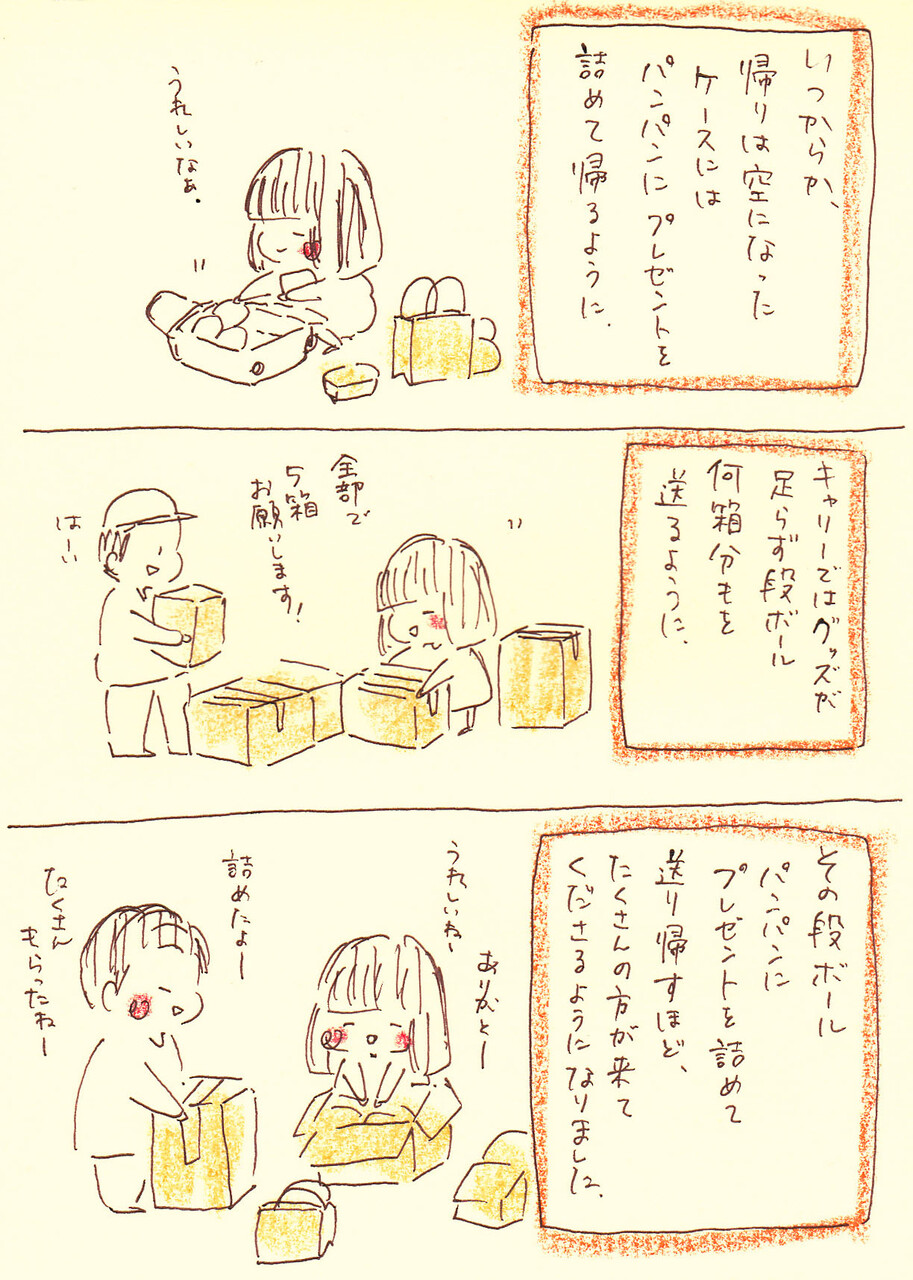 いつからか、
帰りは空になった
ケースには
パンパンにプレゼントを
詰めて帰るように.
うれしいなぁ.
キャリーではグッズが
足らず段ボール
何箱分もを
送るように、
全部で
5箱
お願いします!
はーい
その段ボール
パンパンに
プレゼントを詰めて
送り帰すほど、
たくさんの方が来て
くださるようになりました.
うれしいねー
ありがとー
詰めたよー
たくさん
もらったねー